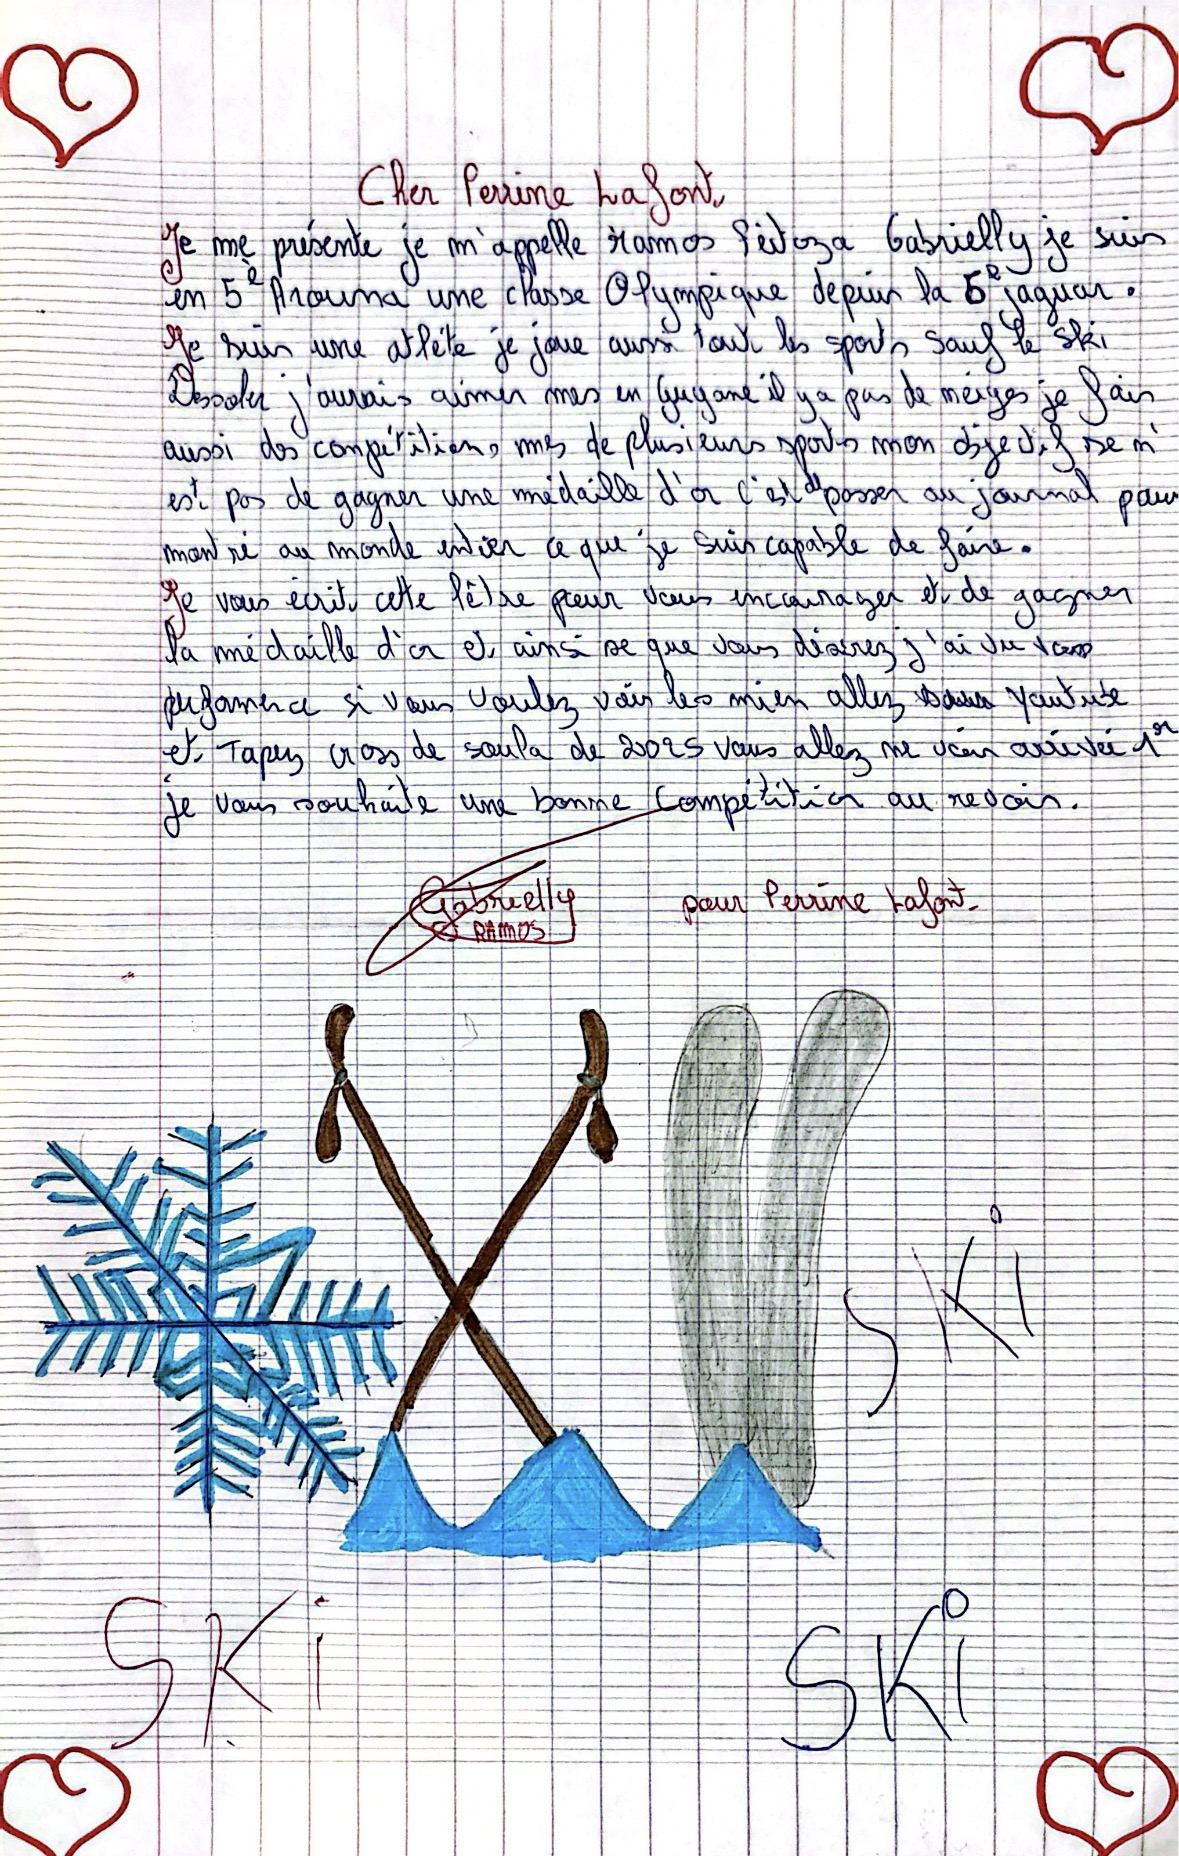 Cher Perrine Lafont,
Je me présente je m'appelle ramos feitoza Gabrielly je suis
en 5e Arouma une classe Olympique depuis la 6e jaguar.
Je suis une atléte je joue aussi tout les sports sauf le ski
Dessoler j'aurais aimer mes en Guyane il y a pas de neiges je fais
aussi des compétitions mes de plusieurs sports mon objectif se n'
est pas de gagner une médaille d'or c'est de passer au journal pour
montré au monde entier ce que je suis capable de faire.
Je vous écrit cette lêtre pour vous encourager et de gagner
la médaille d'or et ainsi se que vous désirez j'ai vu vos
perfomence si vous voulez voir les mien allez sous Youtube
et Tapez cross de soula de 2025 vous allez me voir arrivée 1er
je vous souhaite une bonne compétition au revoir.
Gabrielly pour Perrine Lafont.
RAMOS
SKi
SKi SKi